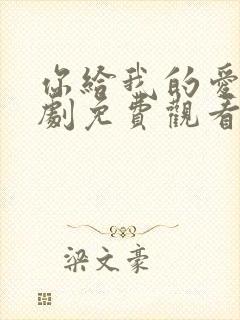 你給我的愛
劇免費觀看
梁文豪